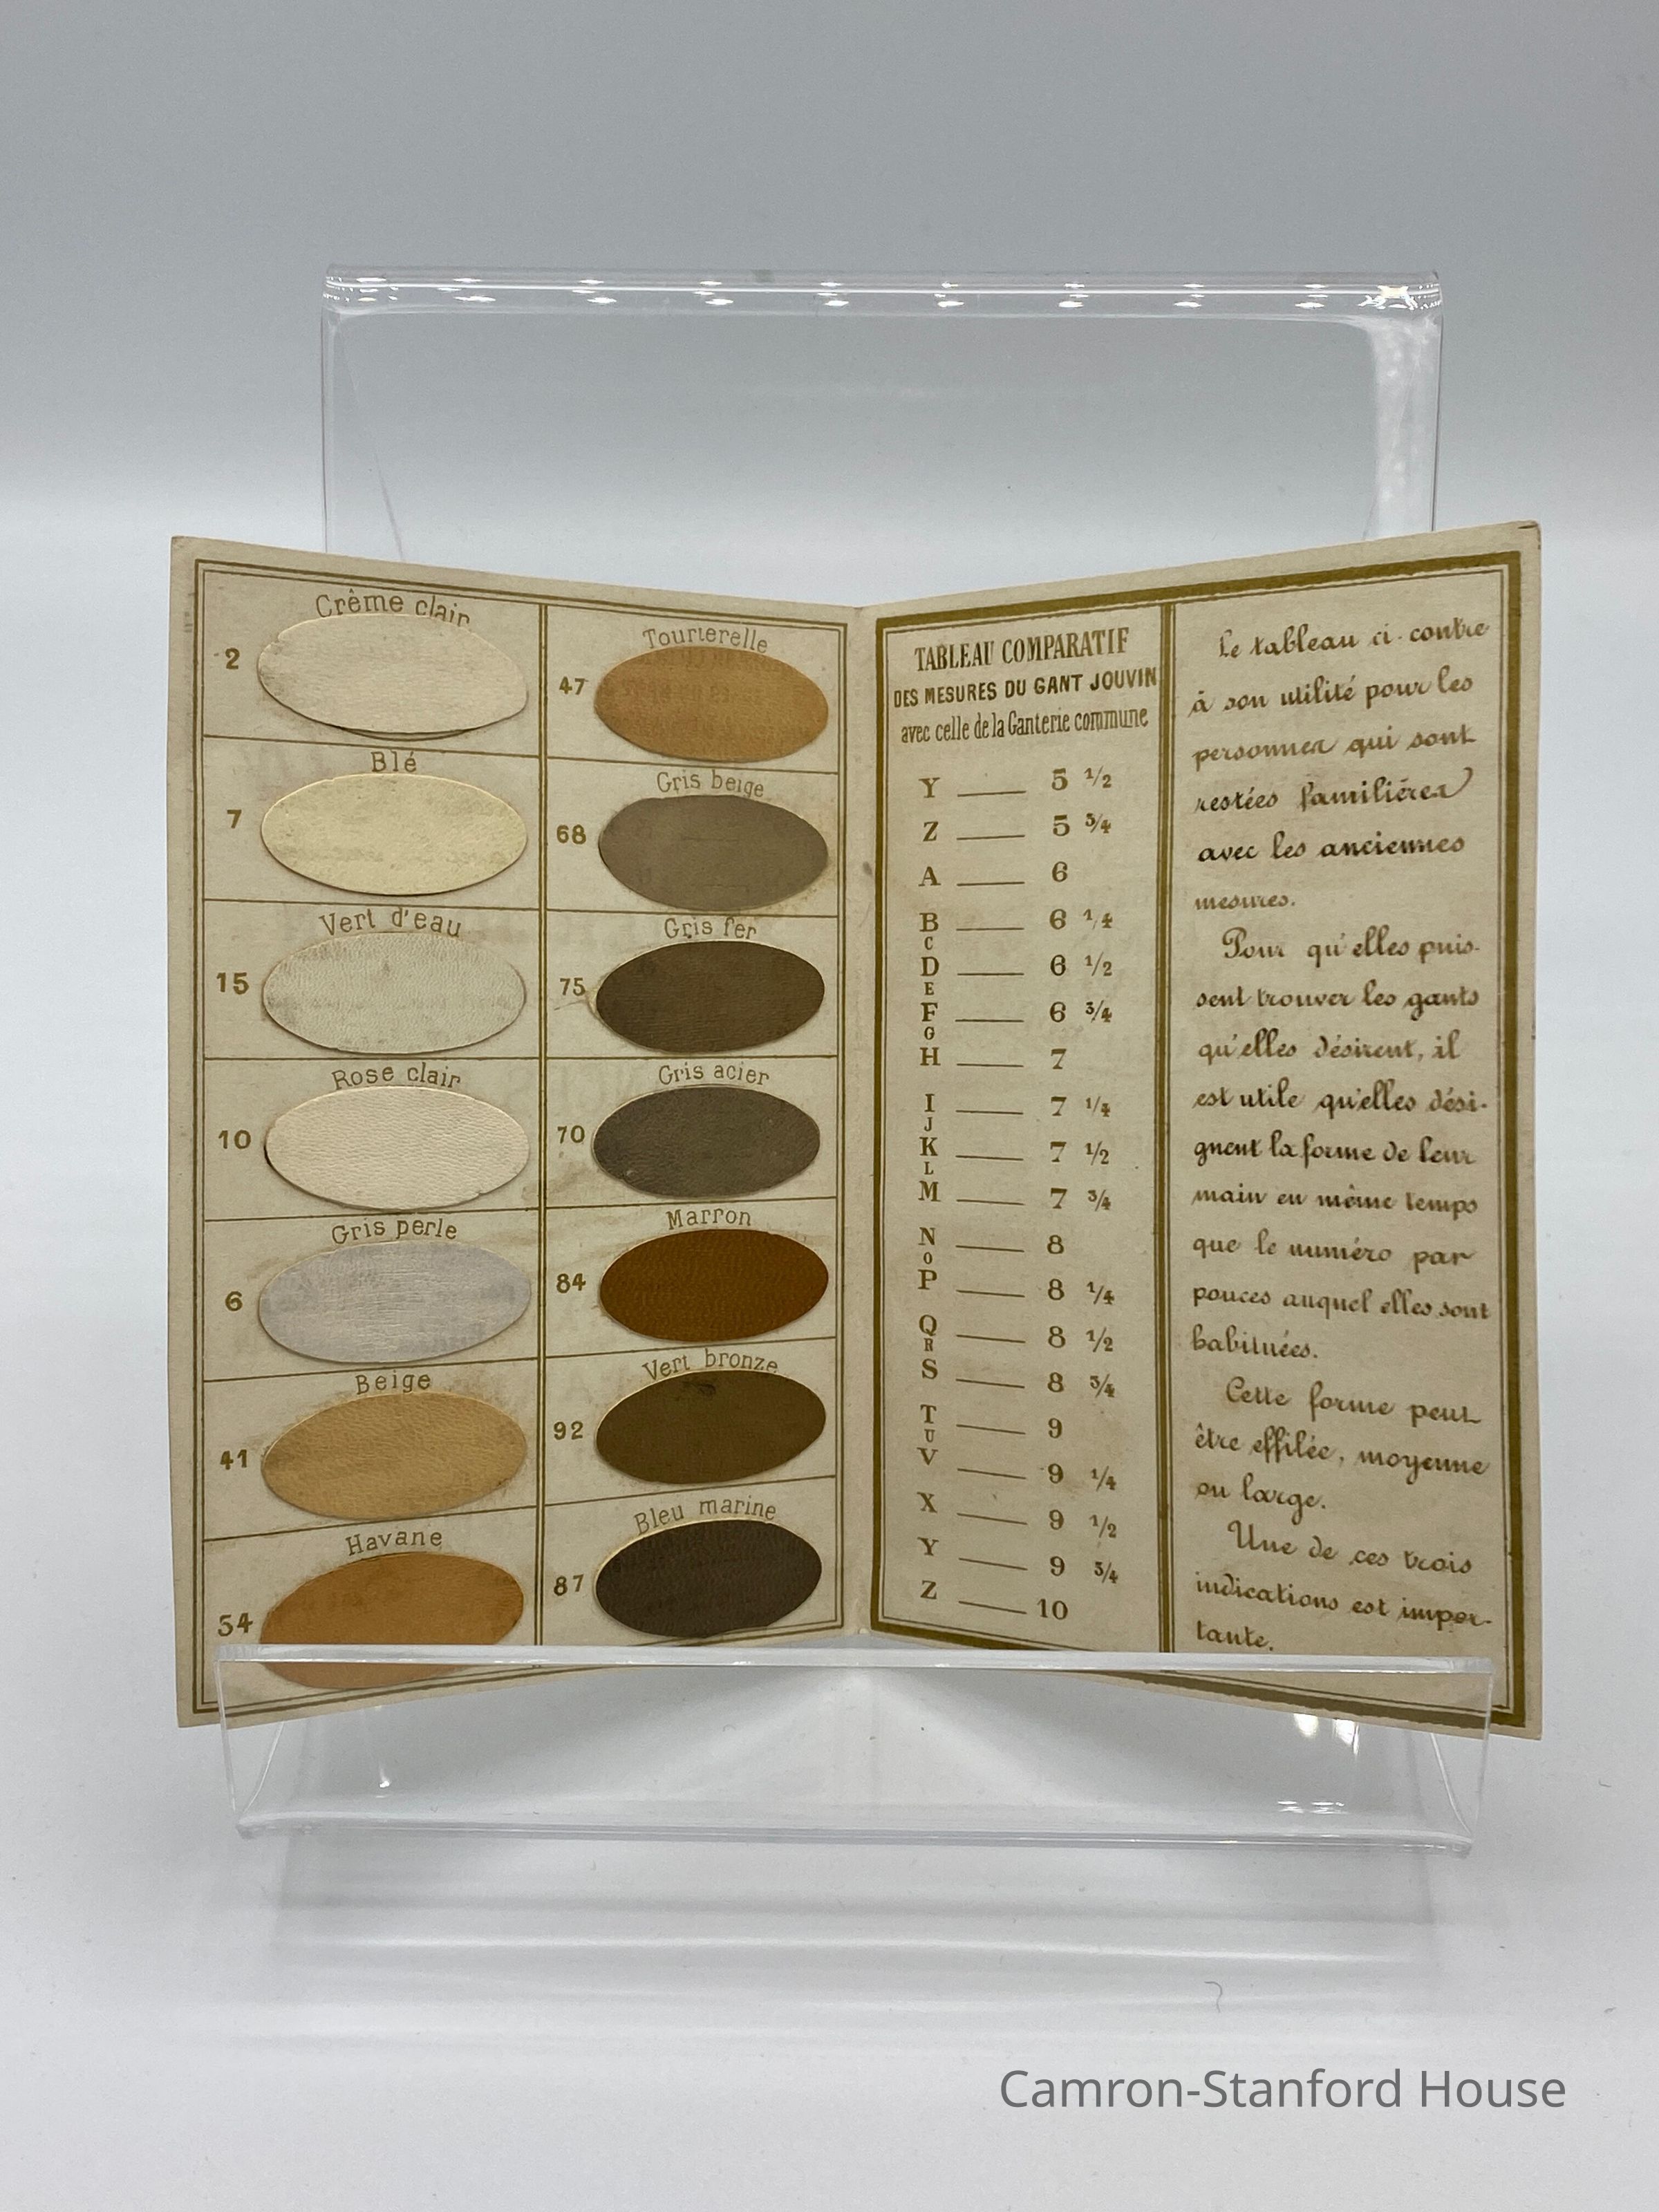 Crême clair
2
Blé
7
Vert d'eau
15
Rose clair
10
Gris perle
6
Beige
41
Havane
54
Tourterelle
47
Gris beige
68
Gris fer
75
Gris acier
70
Marron
84
Vert bronze
92
Bleu marine
87
TABLEAU COMPARATIF
DES MESURES DU GANT JOUVIN
avec celle de la Ganterie commune
Y 5 1/2
Z 5 3/4
A 6
B 6 1/4
C
D 6 1/2
E
F 6 3/4
G
H 7
I 7 1/4
J
K 7 1/2
L
M 7 3/4
N 8
O
P 8 1/4
Q 8 1/2
R
S 8 3/4
T 9
U
V 9 1/4
X 9 1/2
Y 9 3/4
Z 10
Le tableau ci-contre
à son utilité pour les
personnes qui sont
restées familières
avec les anciennes
mesures.
Pour qu'elles puis-
sent trouver les gants
qu'elles désirent, il
est utile qu'elles dési-
gnent la forme de leur
main en même temps
que le numéro par
pouces auquel elles sont
habituées.
Cette forme peut
être effilée, moyenne
ou large.
Une de ces trois
indications est impor-
tante.
Camron-Stanford House